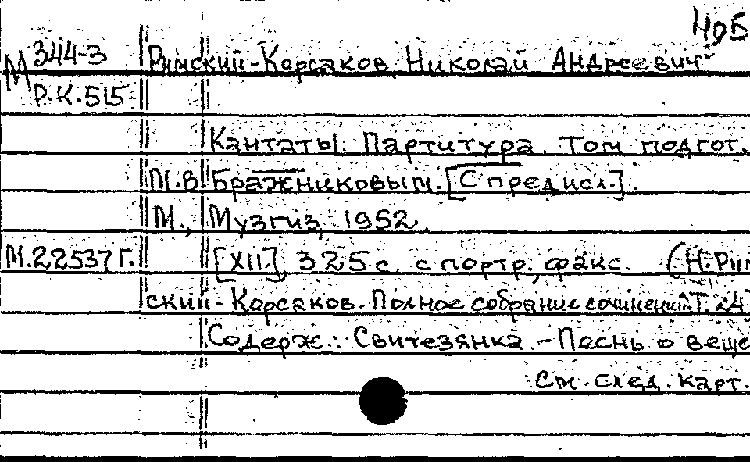 НрБ
М 344-3 Римский-Корсаков, Николай Андреевич
Р.К.515
Кантаты. Партитура. Том подгот.
М.В. Бражниковым. [С предисл.].
М., Музгиз, 1952.
М.22537 г. [XII], 325 с. с портр., факс. (Н. Рим
ский-Корсаков. Полное собрание сочинений. Т. 24
Содерж.: Свитезянка. - Песнь о веще
См. след. карт.